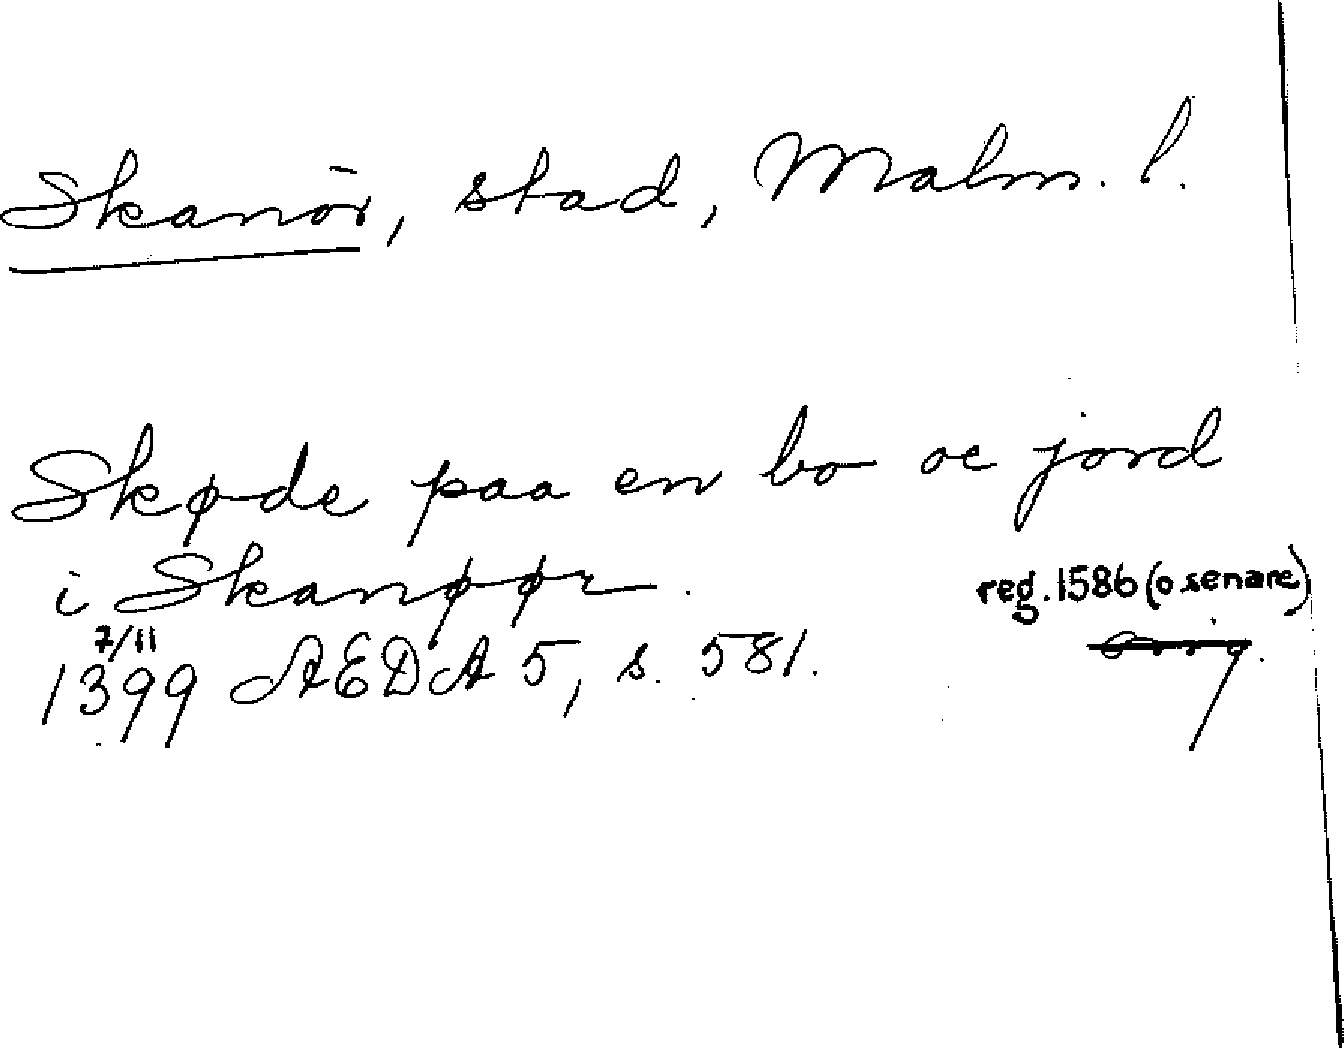 Skanör, stad, Malm. l.
Skøde paa en bo oc jord
i Skanøør.
reg. 1586 (o senare)
7/11
1399 ÆDA 5, s. 581.